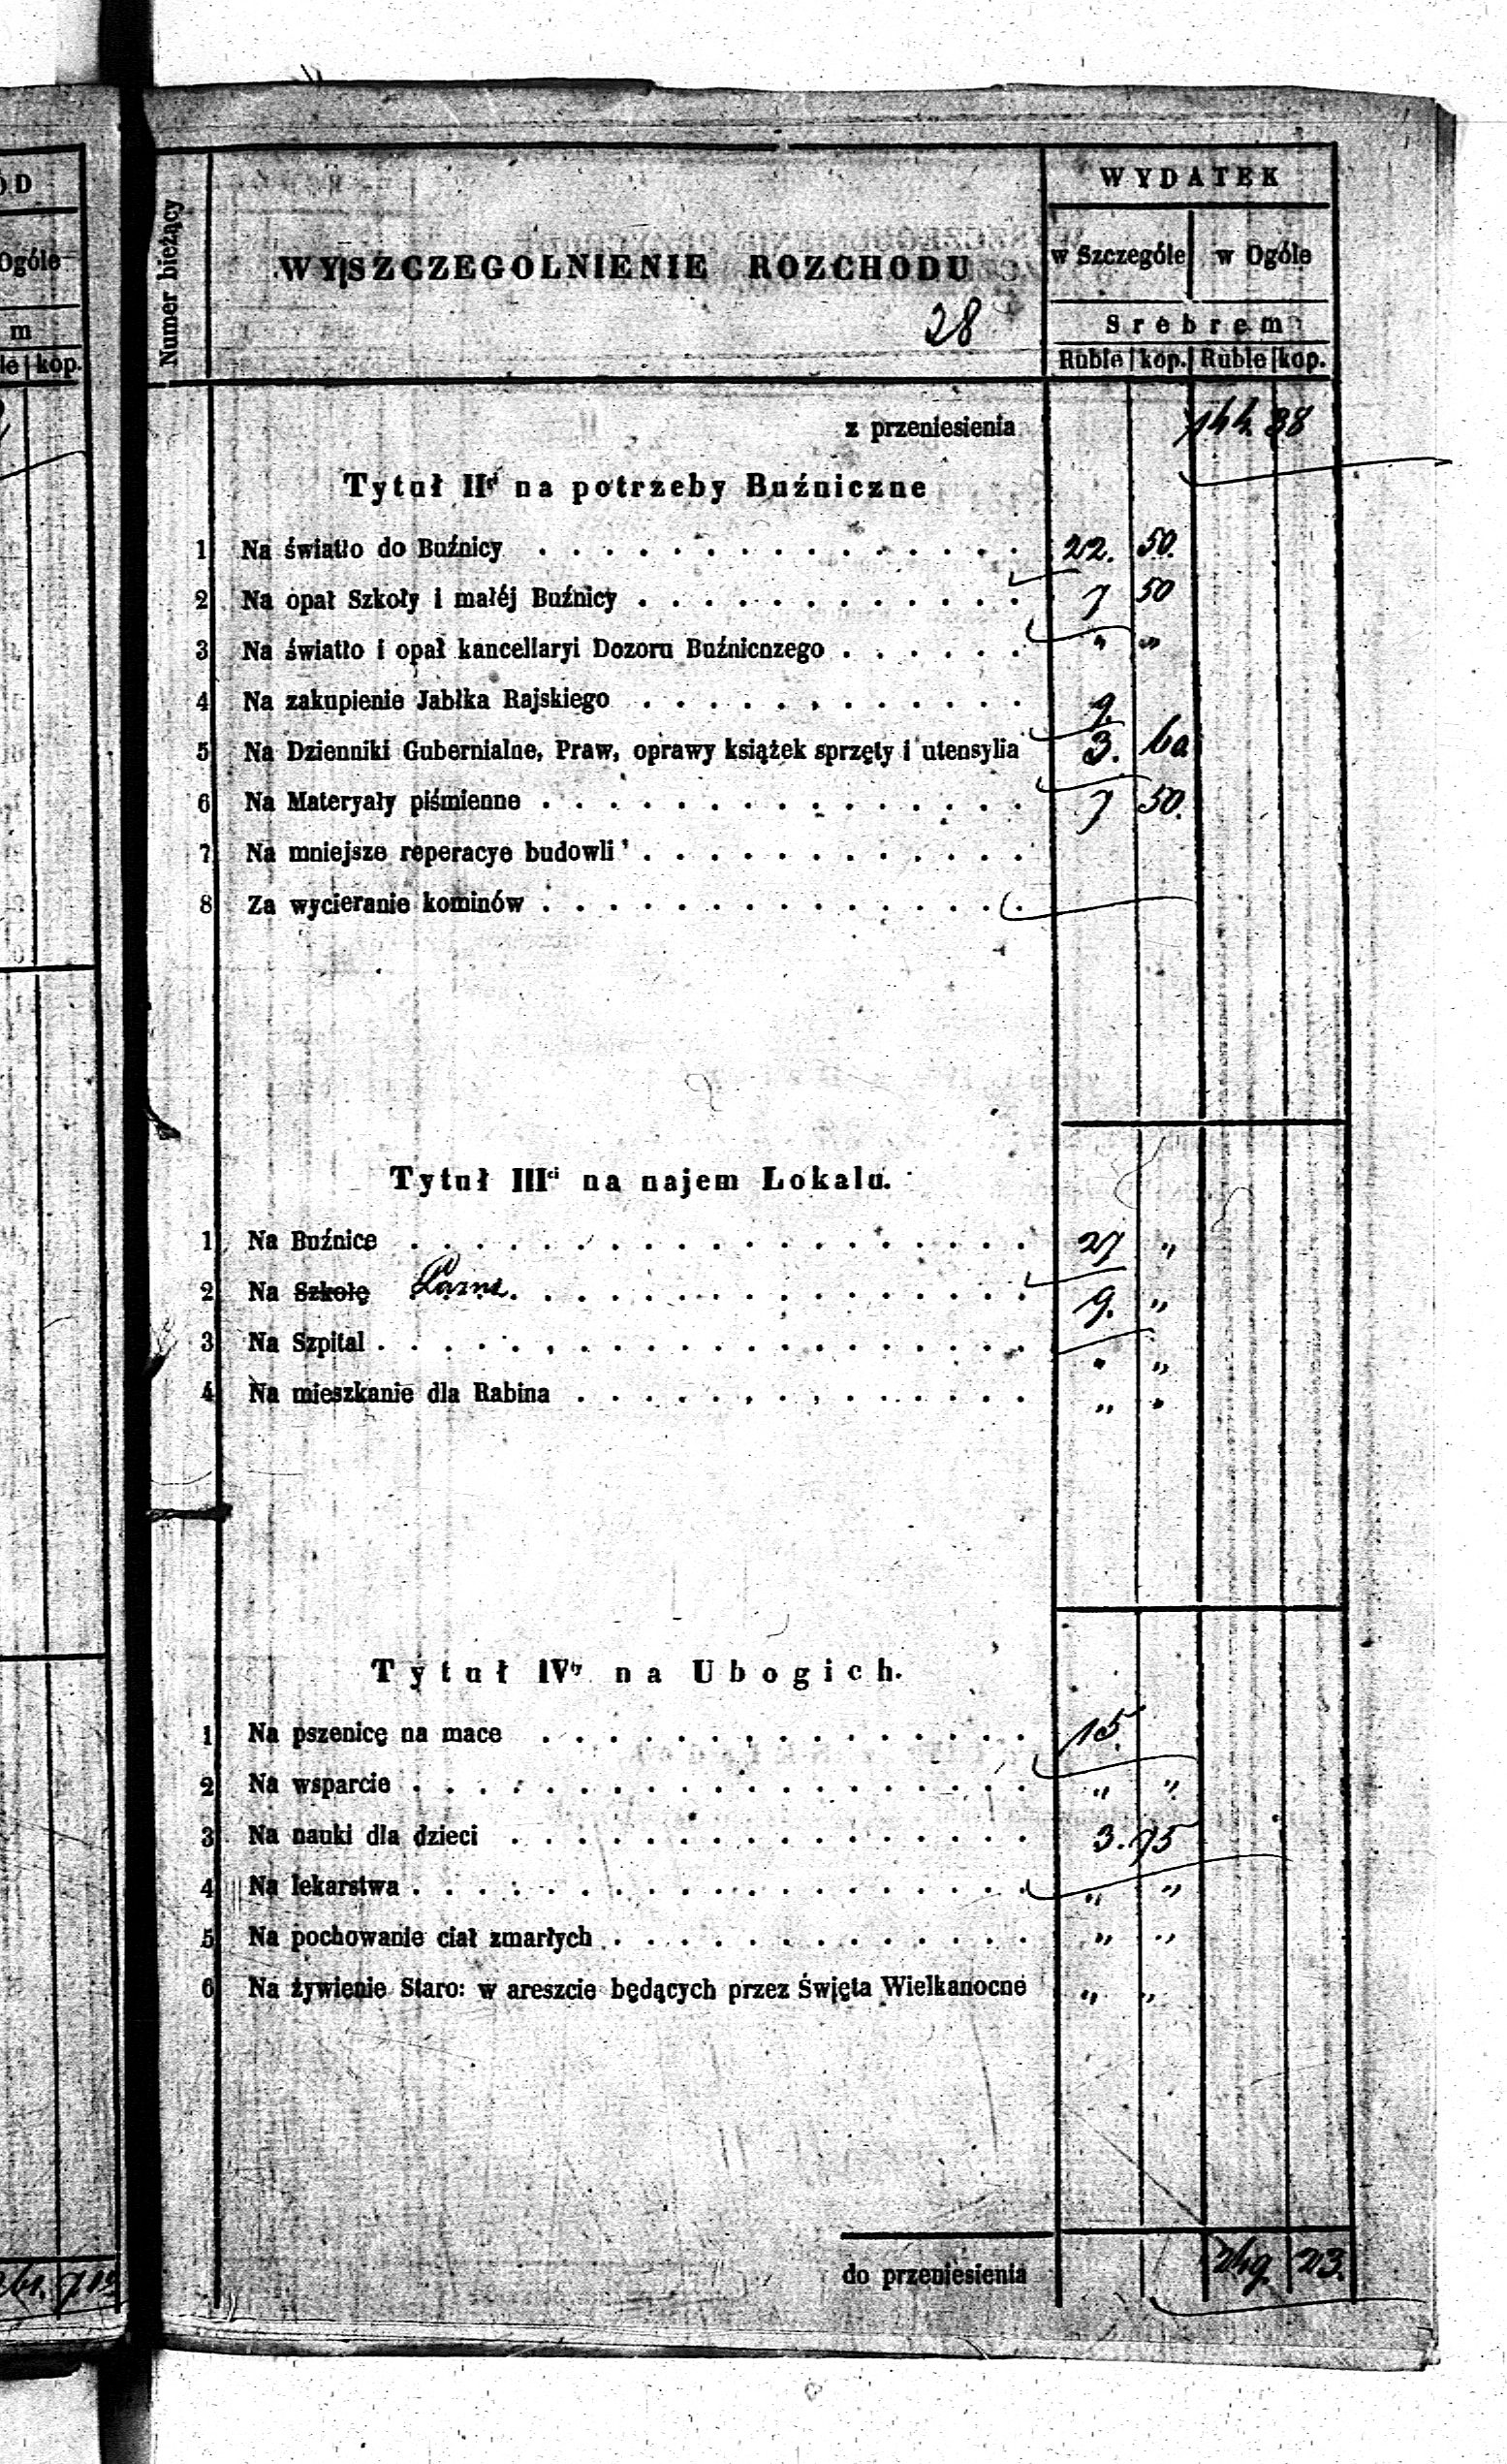 OD
Ogóle
m
kop.
Numer bieżący
WYSZCZEGOLNIENIE ROZCHODU
28
WYDATEK
w Szczególe w Ogóle
Srebrem
Ruble kop. Ruble kop.
z przeniesienia 144. 38
Tytuł IIgi na potrzeby Buźniczne
1 Na światło do Buźnicy 22. 50.
2 Na opał Szkoły i małéj Buźnicy 7 50
3 Na światło i opał kancellaryi Dozoru Buźnicnzego " "
4 Na zakupienie Jabłka Rajskiego 9.
5 Na Dzienniki Gubernialne, Praw, oprawy książek sprzęty i utensylia 3. 60
6 Na Materyały piśmienne 7 50.
7 Na mniejsze reperacye budowli
8 Za wycieranie kominów
Tytuł IIIci na najem Lokalu.
1 Na Buźnice 27 "
2 Na Szkołę 9. "
3 Na Szpital " "
4 Na mieszkanie dla Rabina " "
Tytuł IVty na Ubogich.
1 Na pszenicę na mace 15.
2 Na wsparcie " "
3 Na nauki dla dzieci 3. 75
4 Na lekarstwa " "
5 Na pochowanie ciał zmarłych " "
6 Na żywienie Staro: w areszcie będących przez Święta Wielkanocne " "
do przeniesienia 249. 23.